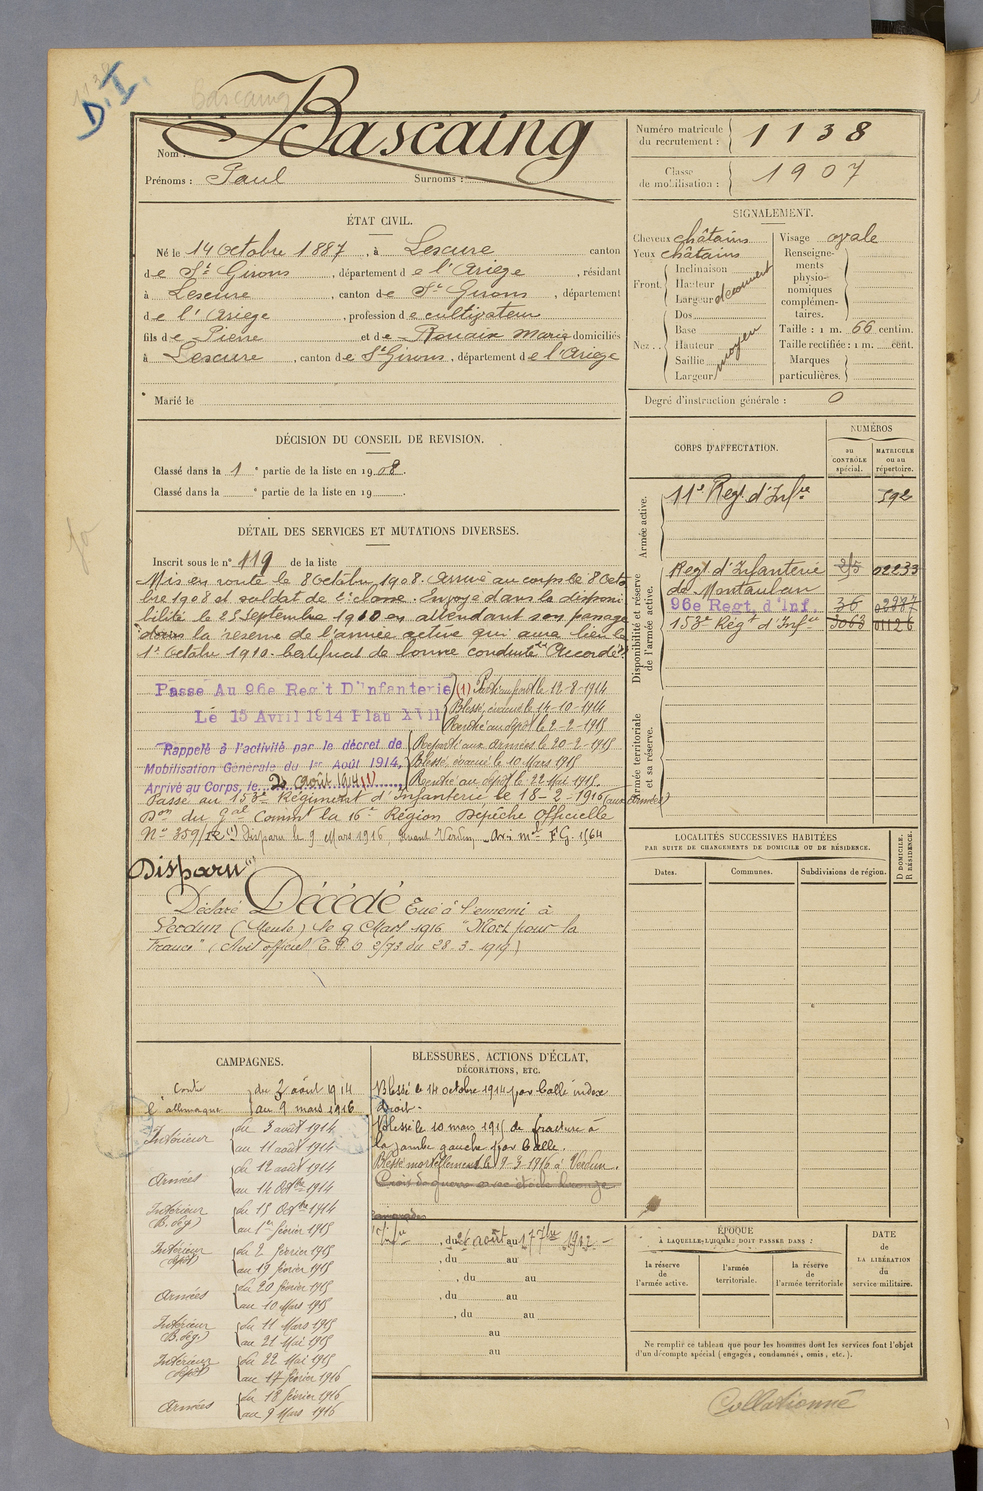 1138
D.I.
Bascaing
Nom : Bascaing
Prénoms : Paul Surnoms :
Numéro matricule du recrutement : 1138
Classe de mobilisation : 1907
ÉTAT CIVIL.
Né le 14 octobre 1887, à Lescure canton
de St Girons, département de l'Ariège, résidant
à Lescure, canton de St Girons, département
de l'Ariège, profession de cultivateur
fils de Pierre et de Rouaix Marie domiciliés
à Lescure, canton de St Girons, département de l'Ariège
Marié le
SIGNALEMENT.
Cheveux châtains
Yeux châtains
Front. Inclinaison
Hauteur
Largeur découvert
Nez .. Dos
Base
Hauteur moyen
Saillie
Largeur
Visage ovale
Renseigne-
ments
physio-
nomiques
complémen-
taires.
Taille : 1 m. 66 centim.
Taille rectifiée : 1 m. cent.
Marques
particulières.
Degré d'instruction générale : 0
DÉCISION DU CONSEIL DE REVISION.
Classé dans la 1e partie de la liste en 1908.
Classé dans la e partie de la liste en 19 .
DÉTAIL DES SERVICES ET MUTATIONS DIVERSES.
Inscrit sous le n° 119 de la liste
Mis en route le 8 Octobre 1908. Arrivé au corps le 8 Octo
bre 1908 et soldat de 2e classe. Envoyé dans la disponi
bilité le 25 Septembre 1910 en attendant son passage
dans la réserve de l'armée active qui aura lieu le
1er Octobre 1910. Certificat de bonne conduite Accordé
Passé Au 96e Reg't D'Infanterie
Le 15 Avril 1914 Plan XVII
(1) Parti au front le 12-8-1914
Blessé, évacué le 14-10-1914
Rentré au dépôt le 2-2-1915
Rappelé à l'activité par le décret de
Mobilisation Générale du 1er Août 1914,
Arrivé au Corps, le 2 août 1914 (1)
Reparti aux armées le 20-2-1915
Blessé, évacué le 10 Mars 1915
Rentré au dépôt le 22 Mai 1915
Passé au 153e Régiment d'Infanterie le 18-2-1916 (aux armées)
Don du Gal Commt la 16e Région Dépêche Officielle
N° 359/ Disparu le 9 Mars 1916, devant Verdun, Avis mel F.G. 1564
Disparu
Déclaré Décédé Tué à l'ennemi à
Verdun (Meuse) le 9 Mars 1916 "Mort pour la
France" (Avis officiel du 28.3.1917)
CORPS D'AFFECTATION.
NUMÉROS
au CONTRÔLE spécial.
MATRICULE ou au répertoire.
Armée active.
11e Regt d'Infrie 592
Disponibilité et réserve de l'armée active.
Regt d'Infanterie 02233
de Montauban
96e Regt, d'Inf. 36 02987
153e Régt d'Infie 3063 01126
Armée territoriale et sa réserve.
LOCALITÉS SUCCESSIVES HABITÉES
PAR SUITE DE CHANGEMENTS DE DOMICILE OU DE RÉSIDENCE.
Dates. Communes. Subdivisions de région.
D DOMICILE.
R RÉSIDENCE.
CAMPAGNES.
Contre du 2 août 1914
l'allemagne au 9 mars 1916
Intérieur du 3 août 1914
au 11 août 1914
Armées du 12 août 1914
au 14 Octbre 1914
Intérieur du 15 Octbre 1914
(B. de g.) au 1er février 1915
Intérieur du 2 février 1915
dépôt au 19 février 1915
Armées du 20 février 1915
au 10 Mars 1915
Intérieur du 11 Mars 1915
(B. de g.) au 21 Mai 1915
Intérieur du 22 Mai 1915
dépôt au 17 février 1916
Armées du 18 février 1916
au 9 Mars 1916
BLESSURES, ACTIONS D'ÉCLAT,
DÉCORATIONS, ETC.
Blessé le 14 octobre 1914 par balle index
droit.
Blessé le 10 mars 1915 de fracture à
la jambe gauche par balle.
Blessé mortellement le 9-3-1916 à Verdun.
Croix de guerre avec étoile bronze
, du 26 août au 17 7bre 1912
, du au
, du au
, du au
, du au
au
au
ÉPOQUE
À LAQUELLE L'HOMME DOIT PASSER DANS :
la réserve de l'armée active.
l'armée territoriale.
la réserve de l'armée territoriale
DATE
de
LA LIBÉRATION
du
service militaire.
Ne remplir ce tableau que pour les hommes dont les services font l'objet
d'un décompte spécial (engagés, condamnés, omis, etc.).
Collationné